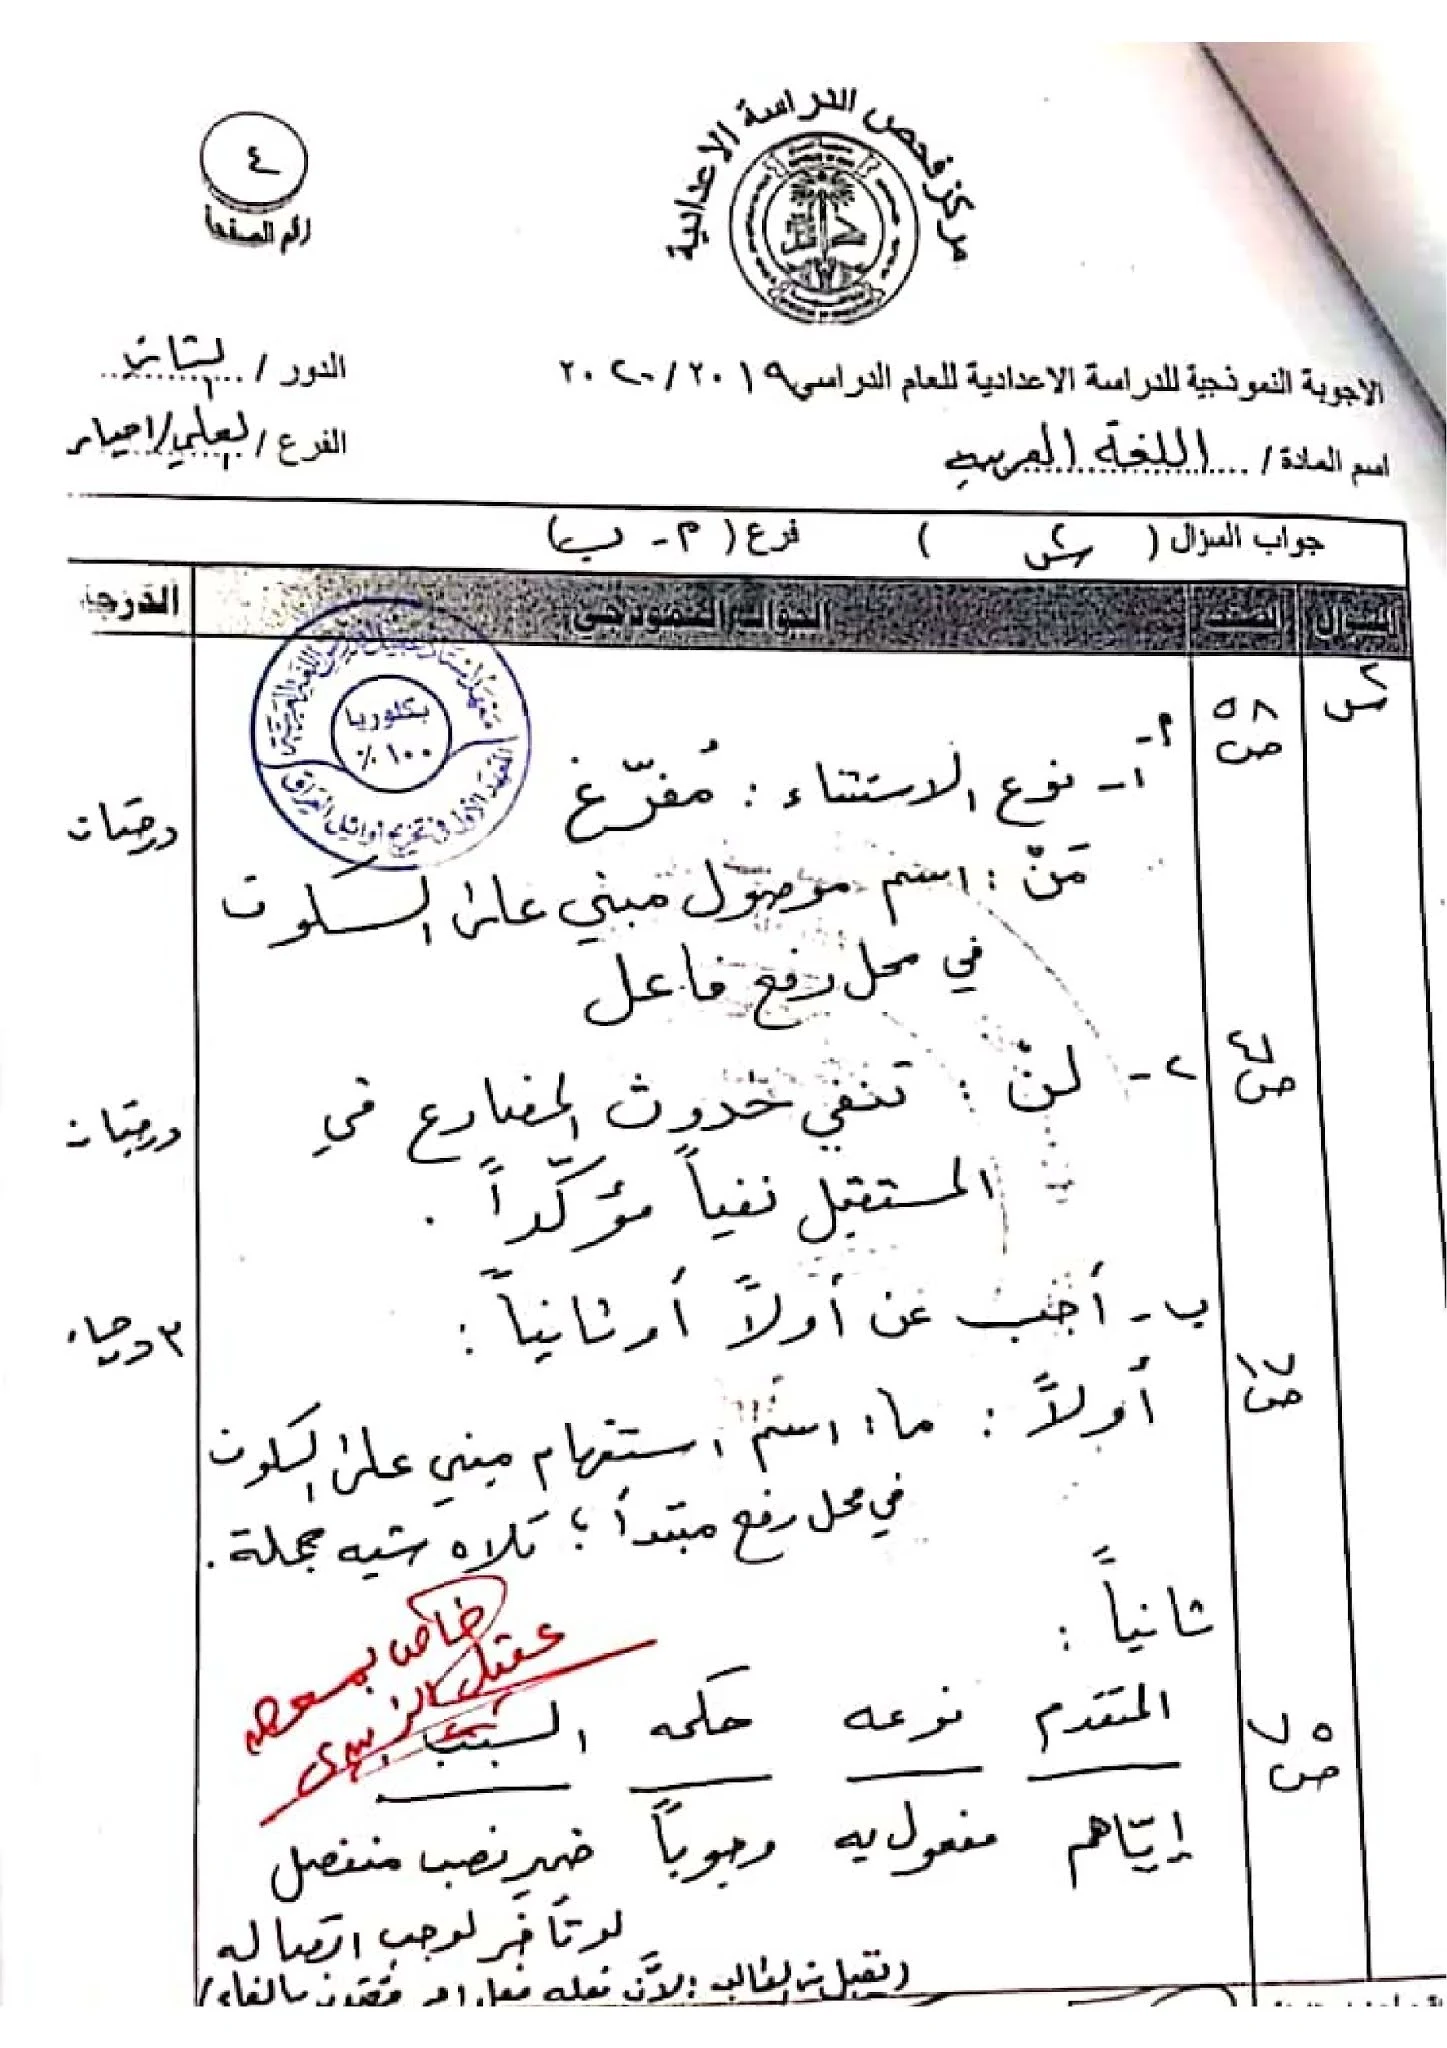 مركز فحص الدراسة الاعدادية
٤
رقم الصفحة
الاجوبة النموذجية للدراسة الاعدادية للعام الدراسي ٢٠١٩ / ٢٠٢٠
الدور / الثاني
اسم المادة / اللغة العربية
الفرع / العلمي/احيائي
جواب السؤال ( س٢ ) فرع ( م - ب )
السؤال الصفحة الجواب النموذجي الدرجة
س٢
ص٥٨
م-
١- نوع الاستثناء : مُفرّغ
درجتان
مَنْ : اسم موصول مبني على السكون
في محل رفع فاعل
٢- لنْ : تنفي حدوث المضارع في
درجتان
المستقبل نفياً مؤكّداً .
ب - أجب عن أولاً أو ثانياً :
أولاً : ما : اسم استفهام مبني على السكون
في محل رفع مبتدأ ؛ تلاه شبه جملة .
ثانياً :
المتقدم نوعه حكمه السبب
ص٧٥
إيّاهم مفعول به وجوباً ضمير نصب منفصل
لو تأخر لوجب اتصاله
بكلوريا
١٠٠ ٪
خاص بمعهد
عقيل الزبيدي